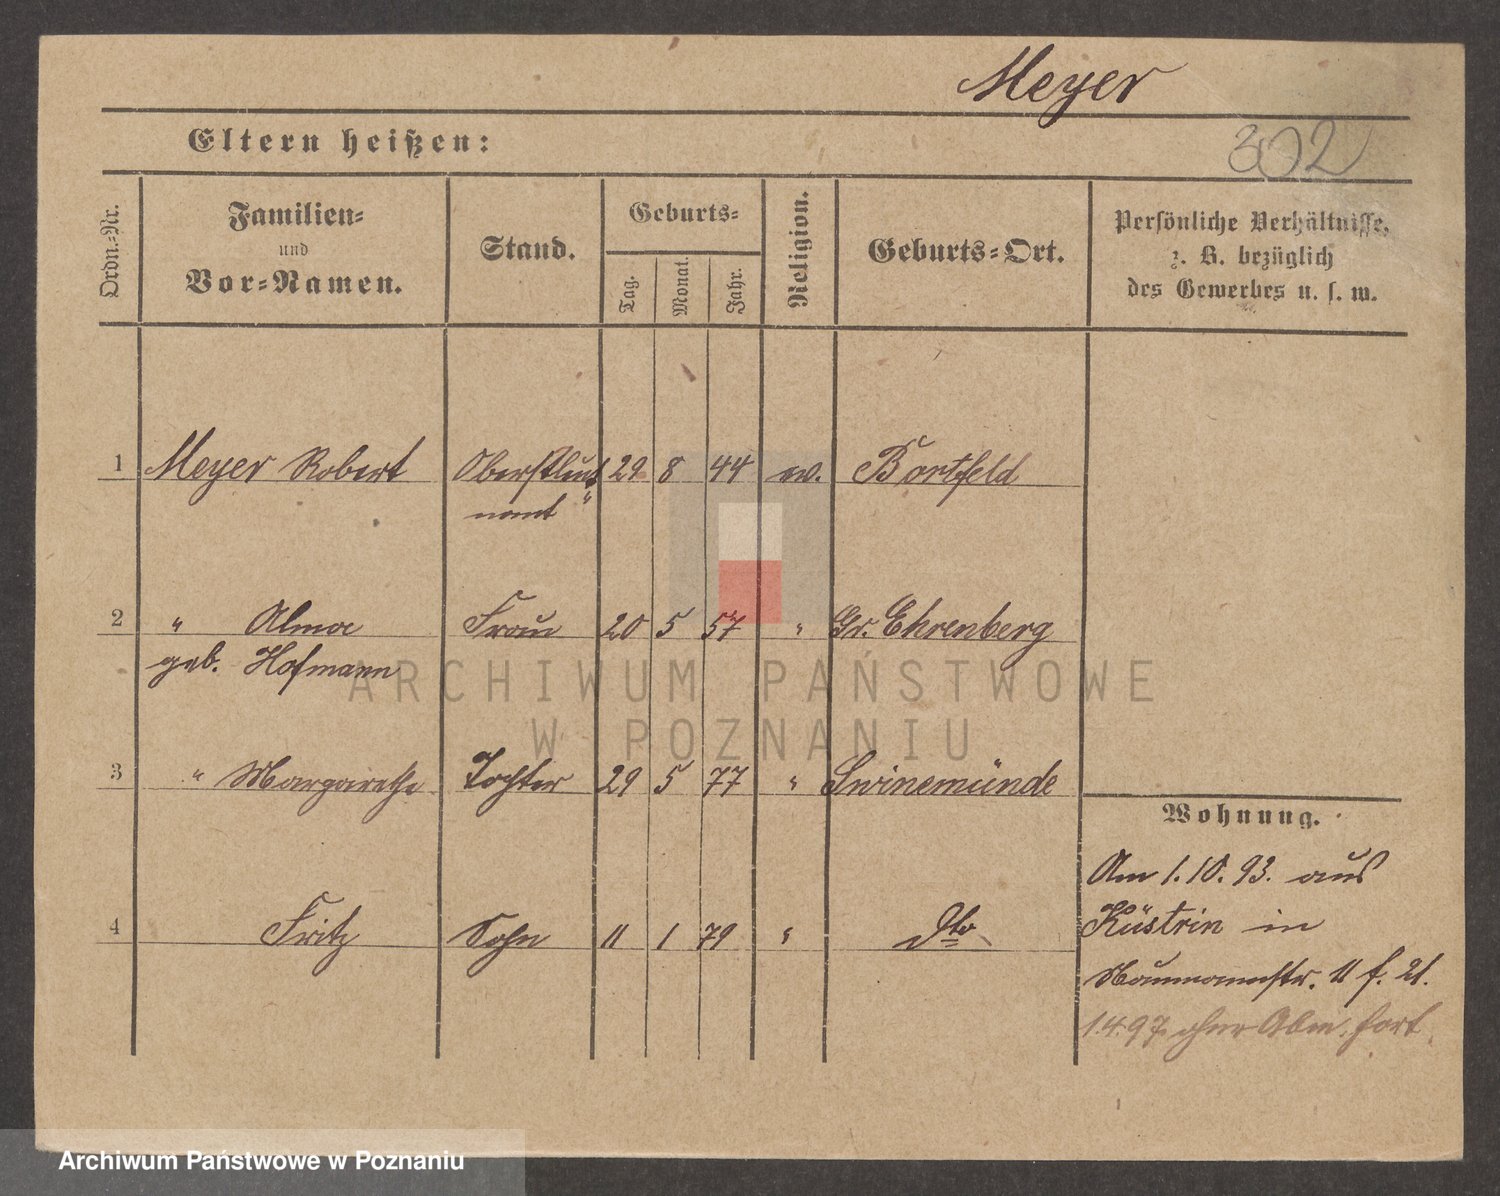 Meyer
302
Eltern heißen:
Ordn.-Nr.
Familien-
und
Vor-Namen.
Stand.
Geburts-
Tag.
Monat.
Jahr.
Religion.
Geburts-Ort.
Persönliche Verhältnisse,
z. B. bezüglich
des Gewerbes u. s. w.
1 Meyer Robert Oberstlieut 29 8 44 ev. Bortfeld
nant "
2 " Alma Frau 20 5 57 " Gr. Ehrenberg
geb. Hofmann
3 " Margarethe Tochter 29 5 77 " Swinemünde
4 Fritz Sohn 11 1 79 " dto
Wohnung.
Am 1.10.93. aus
Küstrin in
Naumannstr. 11 f. 21.
1.4.97 ohne Abm. fort
ARCHIWUM PAŃSTWOWE
W POZNANIU
Archiwum Państwowe w Poznaniu